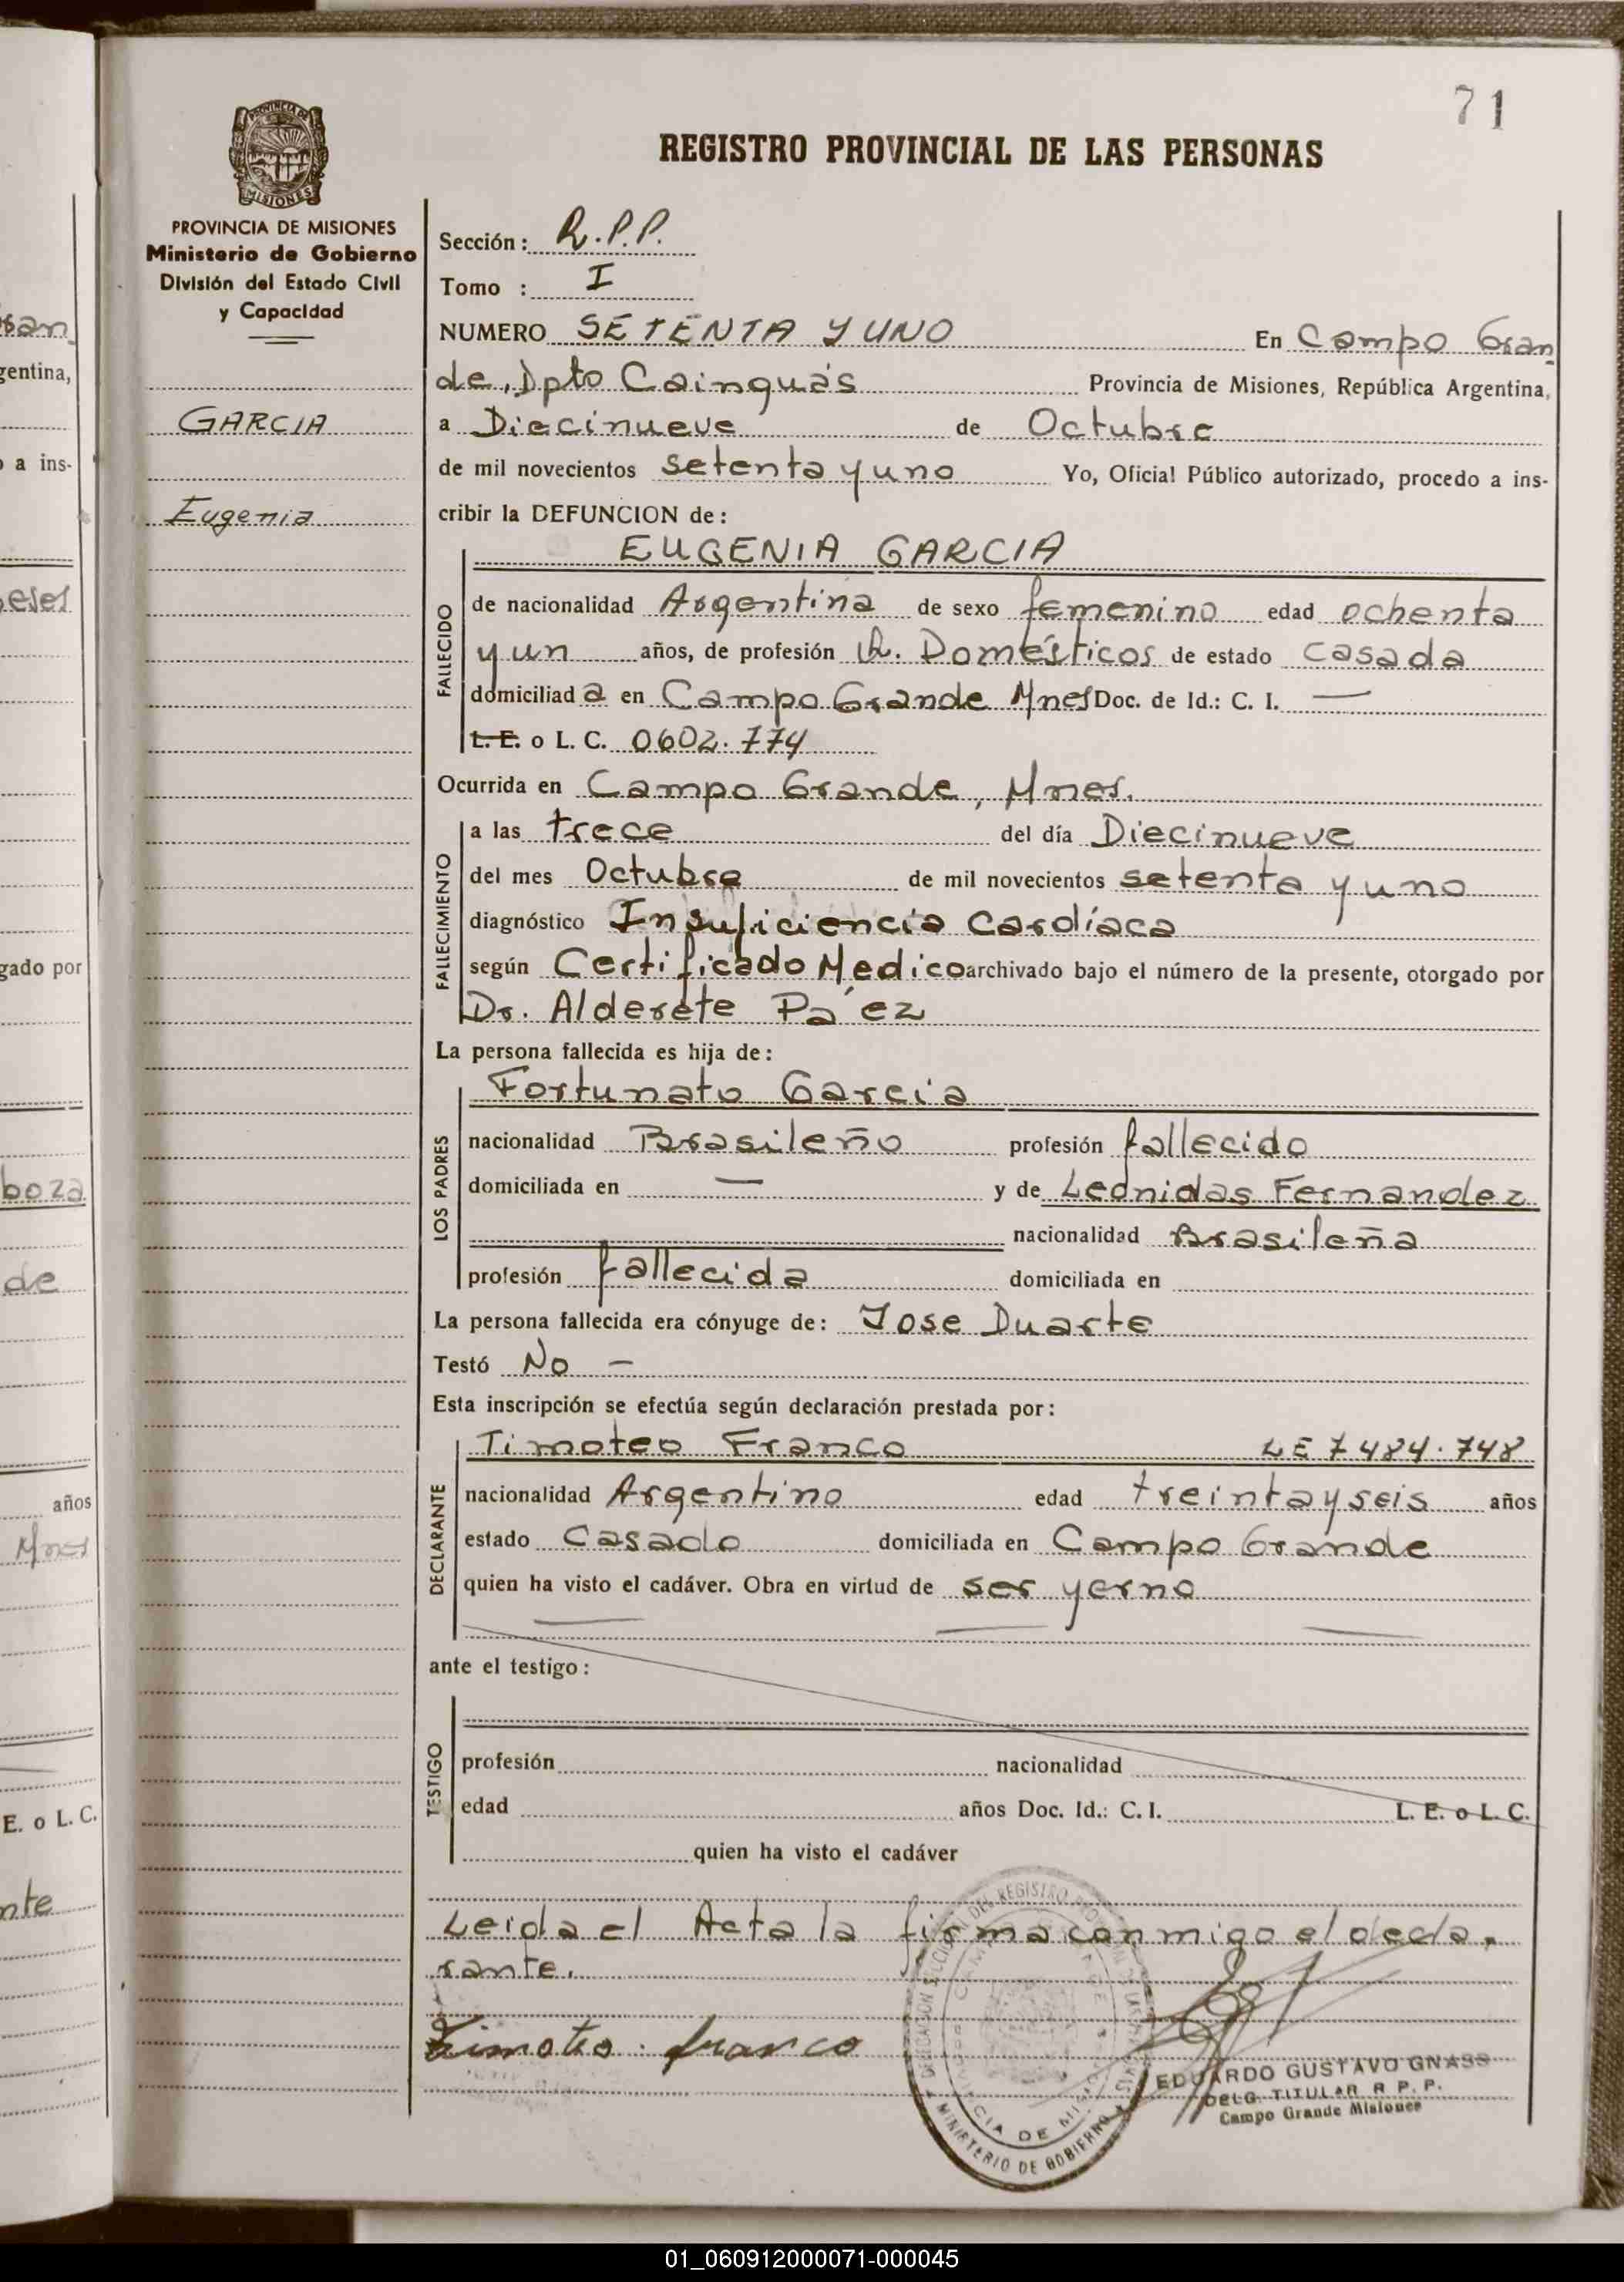 71
REGISTRO PROVINCIAL DE LAS PERSONAS
PROVINCIA DE MISIONES
Ministerio de Gobierno
División del Estado Civil
y Capacidad
GARCIA
Eugenia
Sección: R.P.P.
Tomo : I
NUMERO SETENTA Y UNO En Campo Gran
de, Dpto Cainguás Provincia de Misiones, República Argentina,
a Diecinueve de Octubre
de mil novecientos setenta y uno Yo, Oficial Público autorizado, procedo a ins-
cribir la DEFUNCION de:
EUGENIA GARCIA
FALLECIDO
de nacionalidad Argentina de sexo femenino edad ochenta
y un años, de profesión Domésticos de estado casada
domiciliad a en Campo Grande Mnes Doc. de Id.: C. I. —
L. E. o L. C. 0602.774
Ocurrida en Campo Grande, Mnes.
FALLECIMIENTO
a las trece del día Diecinueve
del mes Octubre de mil novecientos setenta y uno
diagnóstico Insuficiencia Cardíaca
según Certificado Medico archivado bajo el número de la presente, otorgado por
Dr. Alderete Páez
La persona fallecida es hija de:
LOS PADRES
Fortunato Garcia
nacionalidad Brasileño profesión fallecido
domiciliada en — y de Leonidas Fernandez
nacionalidad Brasileña
profesión fallecida domiciliada en
La persona fallecida era cónyuge de: Jose Duarte
Testó No —
Esta inscripción se efectúa según declaración prestada por:
DECLARANTE
Timoteo Franco LE 7484.748
nacionalidad Argentino edad treinta y seis años
estado Casado domiciliada en Campo Grande
quien ha visto el cadáver. Obra en virtud de ser yerno
ante el testigo:
TESTIGO
profesión nacionalidad
edad años Doc. Id.: C. I. L. E. o L. C.
quien ha visto el cadáver
Leida el Acta la firma conmigo el decla-
rante.
Timoteo franco
MINISTERIO DE GOBIERNO
EDUARDO GUSTAVO GNASS
DELG. TITULAR R P. P.
Campo Grande Misiones
san
gentina,
a ins-
eses
gado por
boza
de
años
Mnes
E. o L. C.
nte
01_060912000071-000045